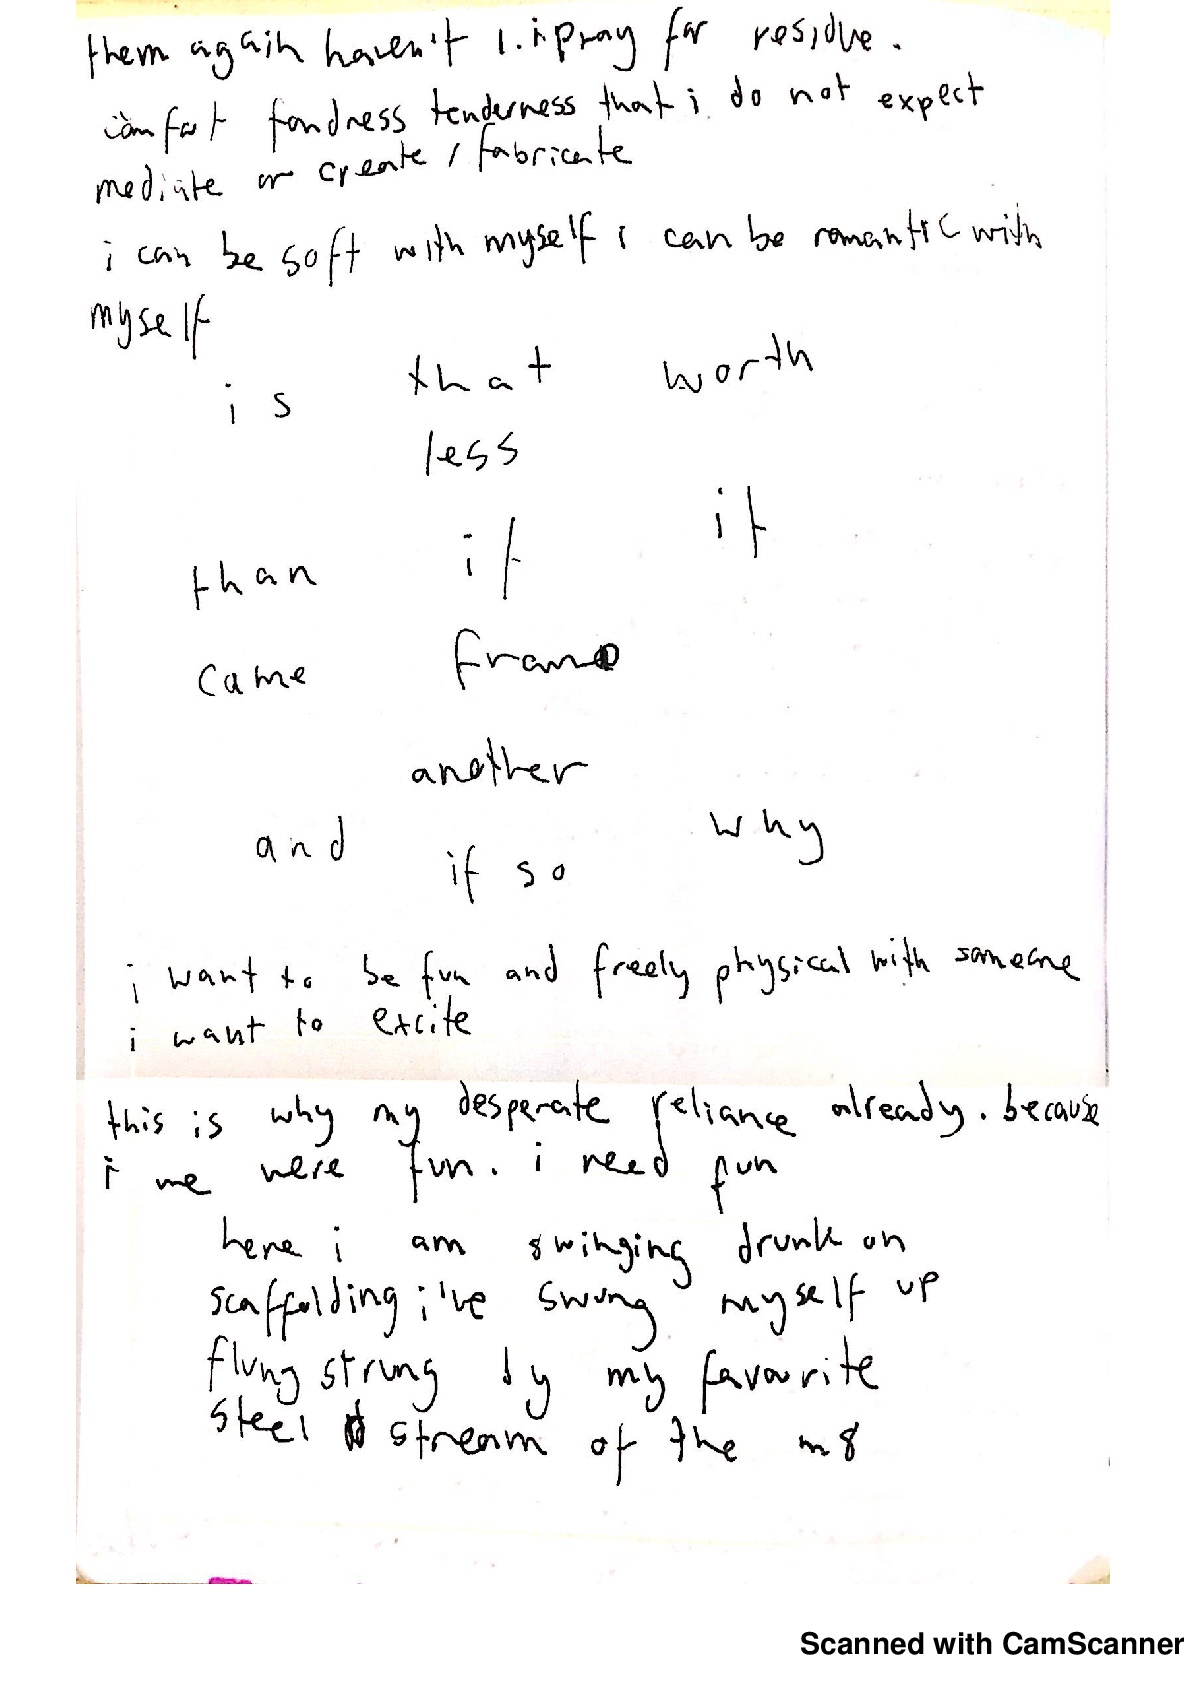 them again haven't i. i pray for residue.
comfort fondness tenderness that i do not expect
mediate or create / fabricate
i can be soft with myself i can be romantic with
myself
is that worth
less
than if it
came from
another
and if so why
i want to be fun and freely physical with someone
i want to excite
this is why my desperate reliance already. because
i me were fun. i need fun
here i am swinging drunk on
scaffolding i've swung myself up
flung strung by my favourite
steel stream of the m8
Scanned with CamScanner